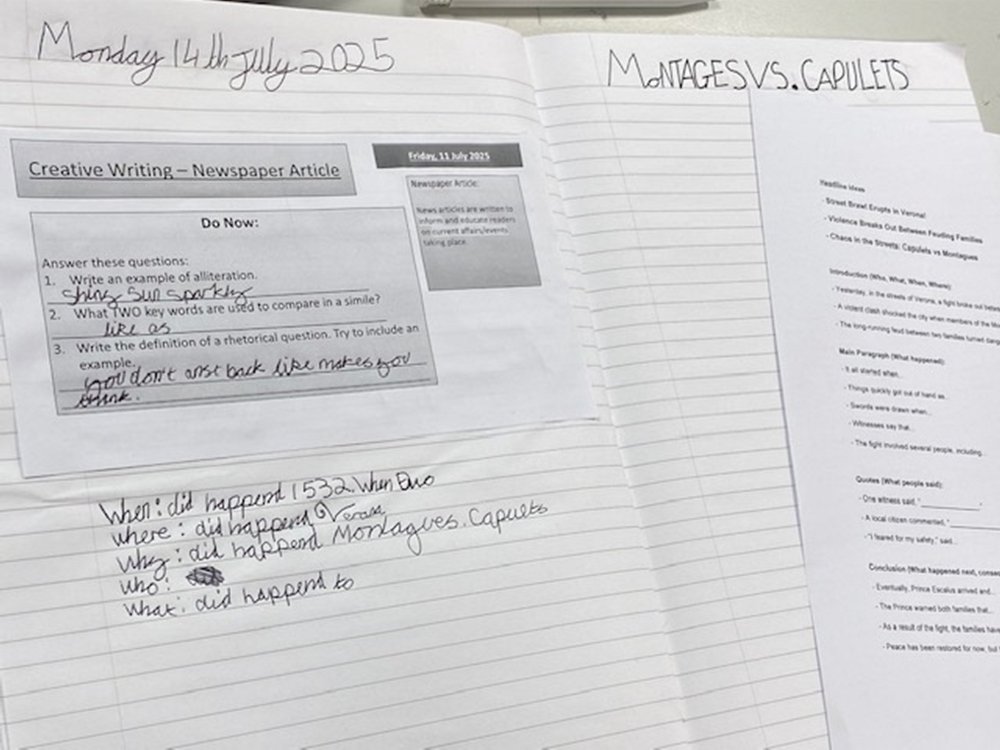 Monday 14th July 2025
Creative Writing – Newspaper Article
Friday, 11 July 2025
Do Now:
Answer these questions:
1. Write an example of alliteration.
Shing Sun sparkly
2. What TWO key words are used to compare in a simile?
like as
3. Write the definition of a rhetorical question. Try to include an
example.
you don't back like makes you
Newspaper Article:
News articles are written to
inform and educate readers
on current affairs/events
taking place.
When: did happend 1532 When
where: did happend Verana
Why: did happend Montagues. Capuets
who:
What: did happend to
MONTAGES VS. CAPULETS
Headline Ideas
- Street Brawl Erupts in Verona!
- Violence Breaks Out Between Feuding Families
- Chaos in the Streets: Capulets vs Montagues
Introduction (Who, What, When, Where):
- Yesterday, in the streets of Verona, a fight broke out
- A violent clash shocked the city when members of the
- The long-running feud between two families turned
Main Paragraph (What happened):
- It all started when...
- Things quickly got out of hand as
- Swords were drawn when...
- Witnesses say that...
- The fight involved several people, including...
Quotes (What people said):
- One witness said, "
- A local citizen commented, "
- "I feared for my safety," said...
Conclusion (What happened next,
- Eventually, Prince Escalus arrived and...
- The Prince warned both families that...
- As a result of the fight, the families have
- Peace has been restored for now, but